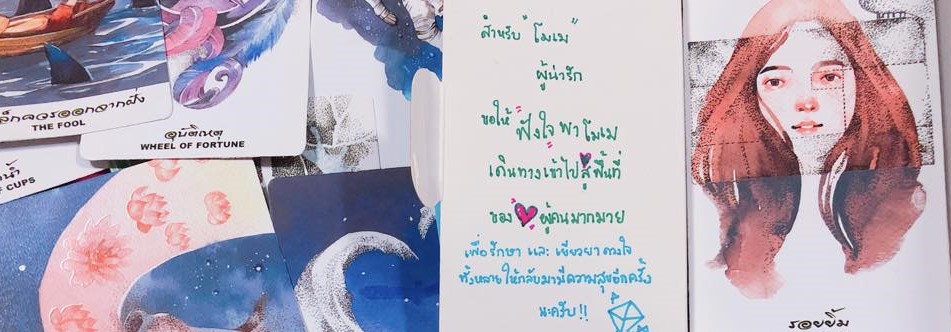 ล็กควรออกจากฝั่ง
THE FOOL
อุบัติเหตุ
WHEEL OF FORTUNE
น้ำ
CUPS
สำหรับ "โมเม"
ผู้น่ารัก
ขอให้ "ฟังใจ" พาโมเม
เดินทางเข้าไปสู่พื้นที่
ของ ผู้คนมากมาย
เพื่อรักษา และ เยียวยา ดวงใจ
ทั้งหลายให้กลับมามีความสุขอีกครั้ง
นะครับ!!
รอยยิ้ม